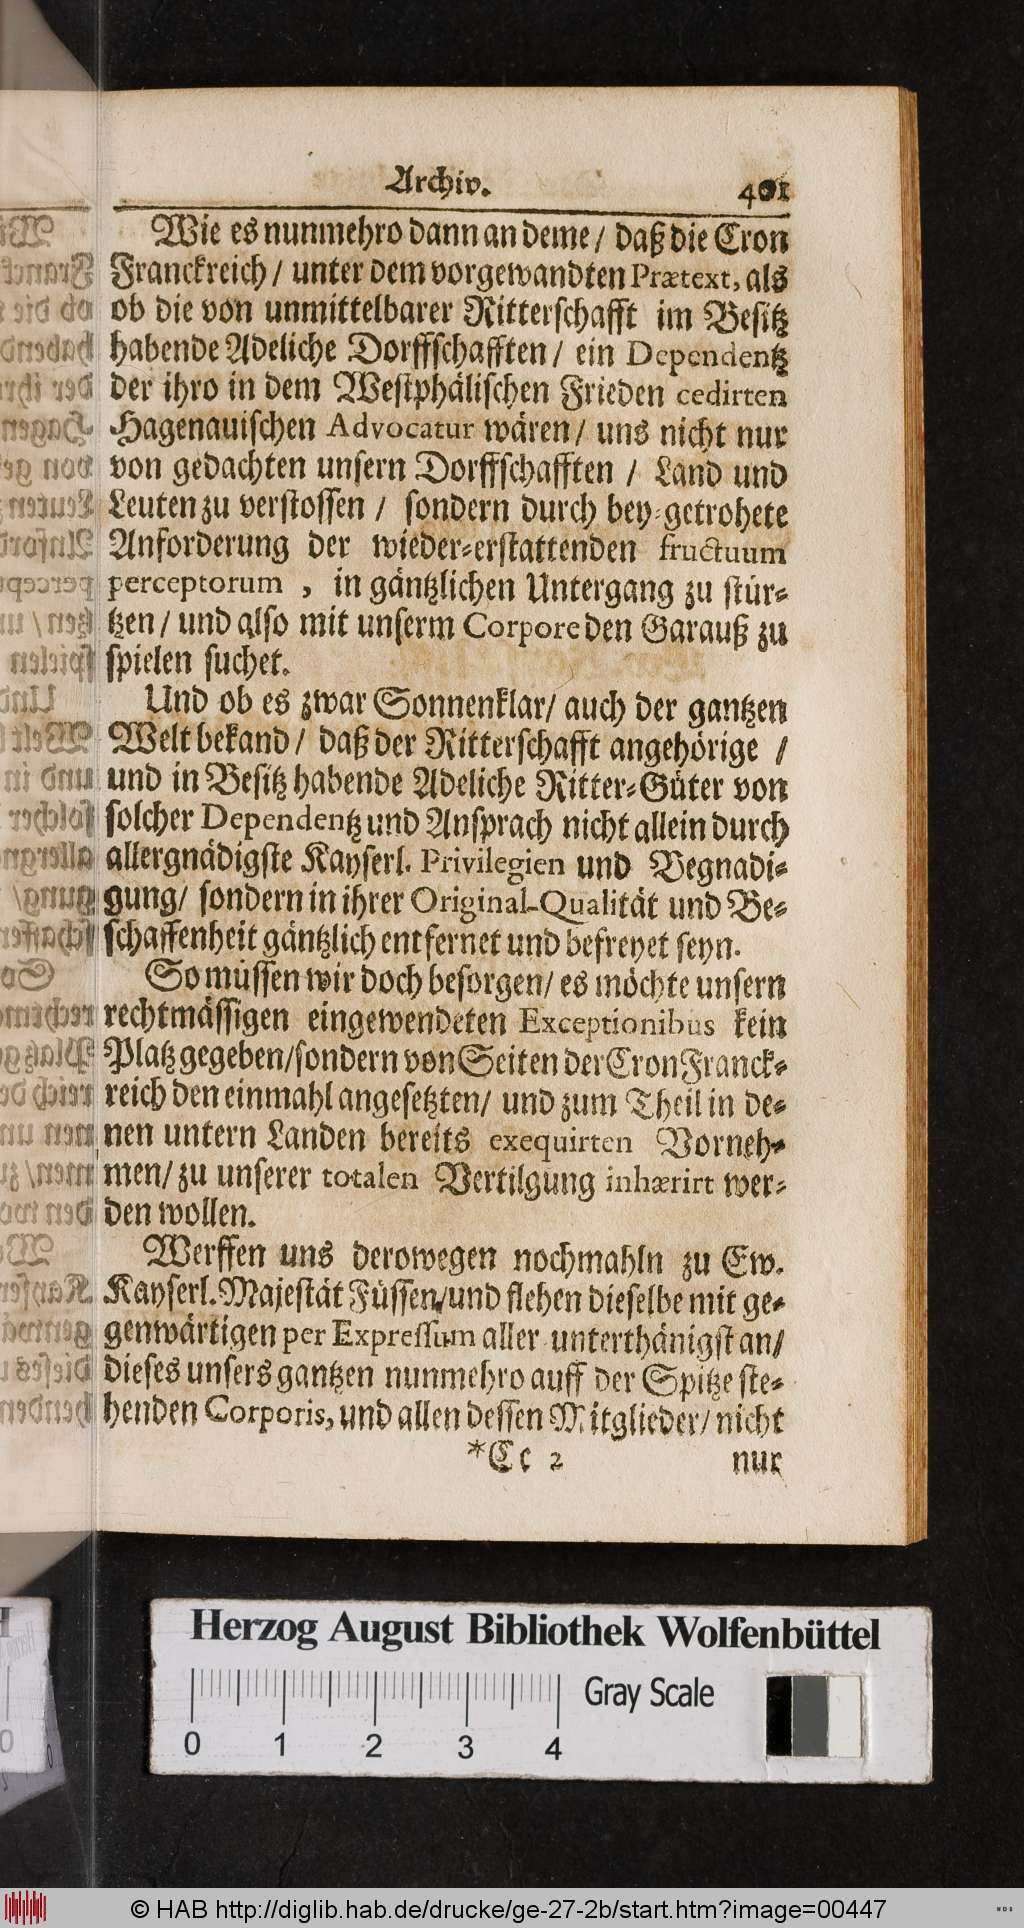 Archiv. 401
Wie es nunmehro dann an deme / daß die Cron
Franckreich / unter dem vorgewandten Prætext, als
ob die von unmittelbarer Ritterschafft im Besitz
habende Adeliche Dorffschafften / ein Dependentz
der ihro in dem Westphälischen Frieden cedirten
Hagenauischen Advocatur wären / uns nicht nur
von gedachten unsern Dorffschafften / Land und
Leuten zu verstossen / sondern durch bey-getrohete
Anforderung der wieder-erstattenden fructuum
perceptorum , in gäntzlichen Untergang zu stür-
tzen / und also mit unserm Corpore den Garauß zu
spielen suchet.
Und ob es zwar Sonnenklar / auch der gantzen
Welt bekand / daß der Ritterschafft angehörige /
und in Besitz habende Adeliche Ritter-Güter von
solcher Dependentz und Ansprach nicht allein durch
allergnädigste Kayserl. Privilegien und Begnadi-
gung / sondern in ihrer Original-Qualität und Be-
schaffenheit gäntzlich entfernet und befreyet seyn.
So müssen wir doch besorgen / es möchte unsern
rechtmässigen eingewendeten Exceptionibus kein
Platz gegeben / sondern von Seiten der Cron Franck-
reich den einmahl angesetzten / und zum Theil in de-
nen untern Landen bereits exequirten Vorneh-
men / zu unserer totalen Vertilgung inhærirt wer-
den wollen.
Werffen uns derowegen nochmahln zu Ew.
Kayserl. Majestät Füssen / und flehen dieselbe mit ge-
genwärtigen per Expressum aller unterthänigst an /
dieses unsers gantzen nunmehro auff der Spitze ste-
henden Corporis, und allen dessen Mitglieder / nicht
*Cc 2 nur
Herzog August Bibliothek Wolfenbüttel
Gray Scale
0 1 2 3 4
© HAB http://diglib.hab.de/drucke/ge-27-2b/start.htm?image=00447